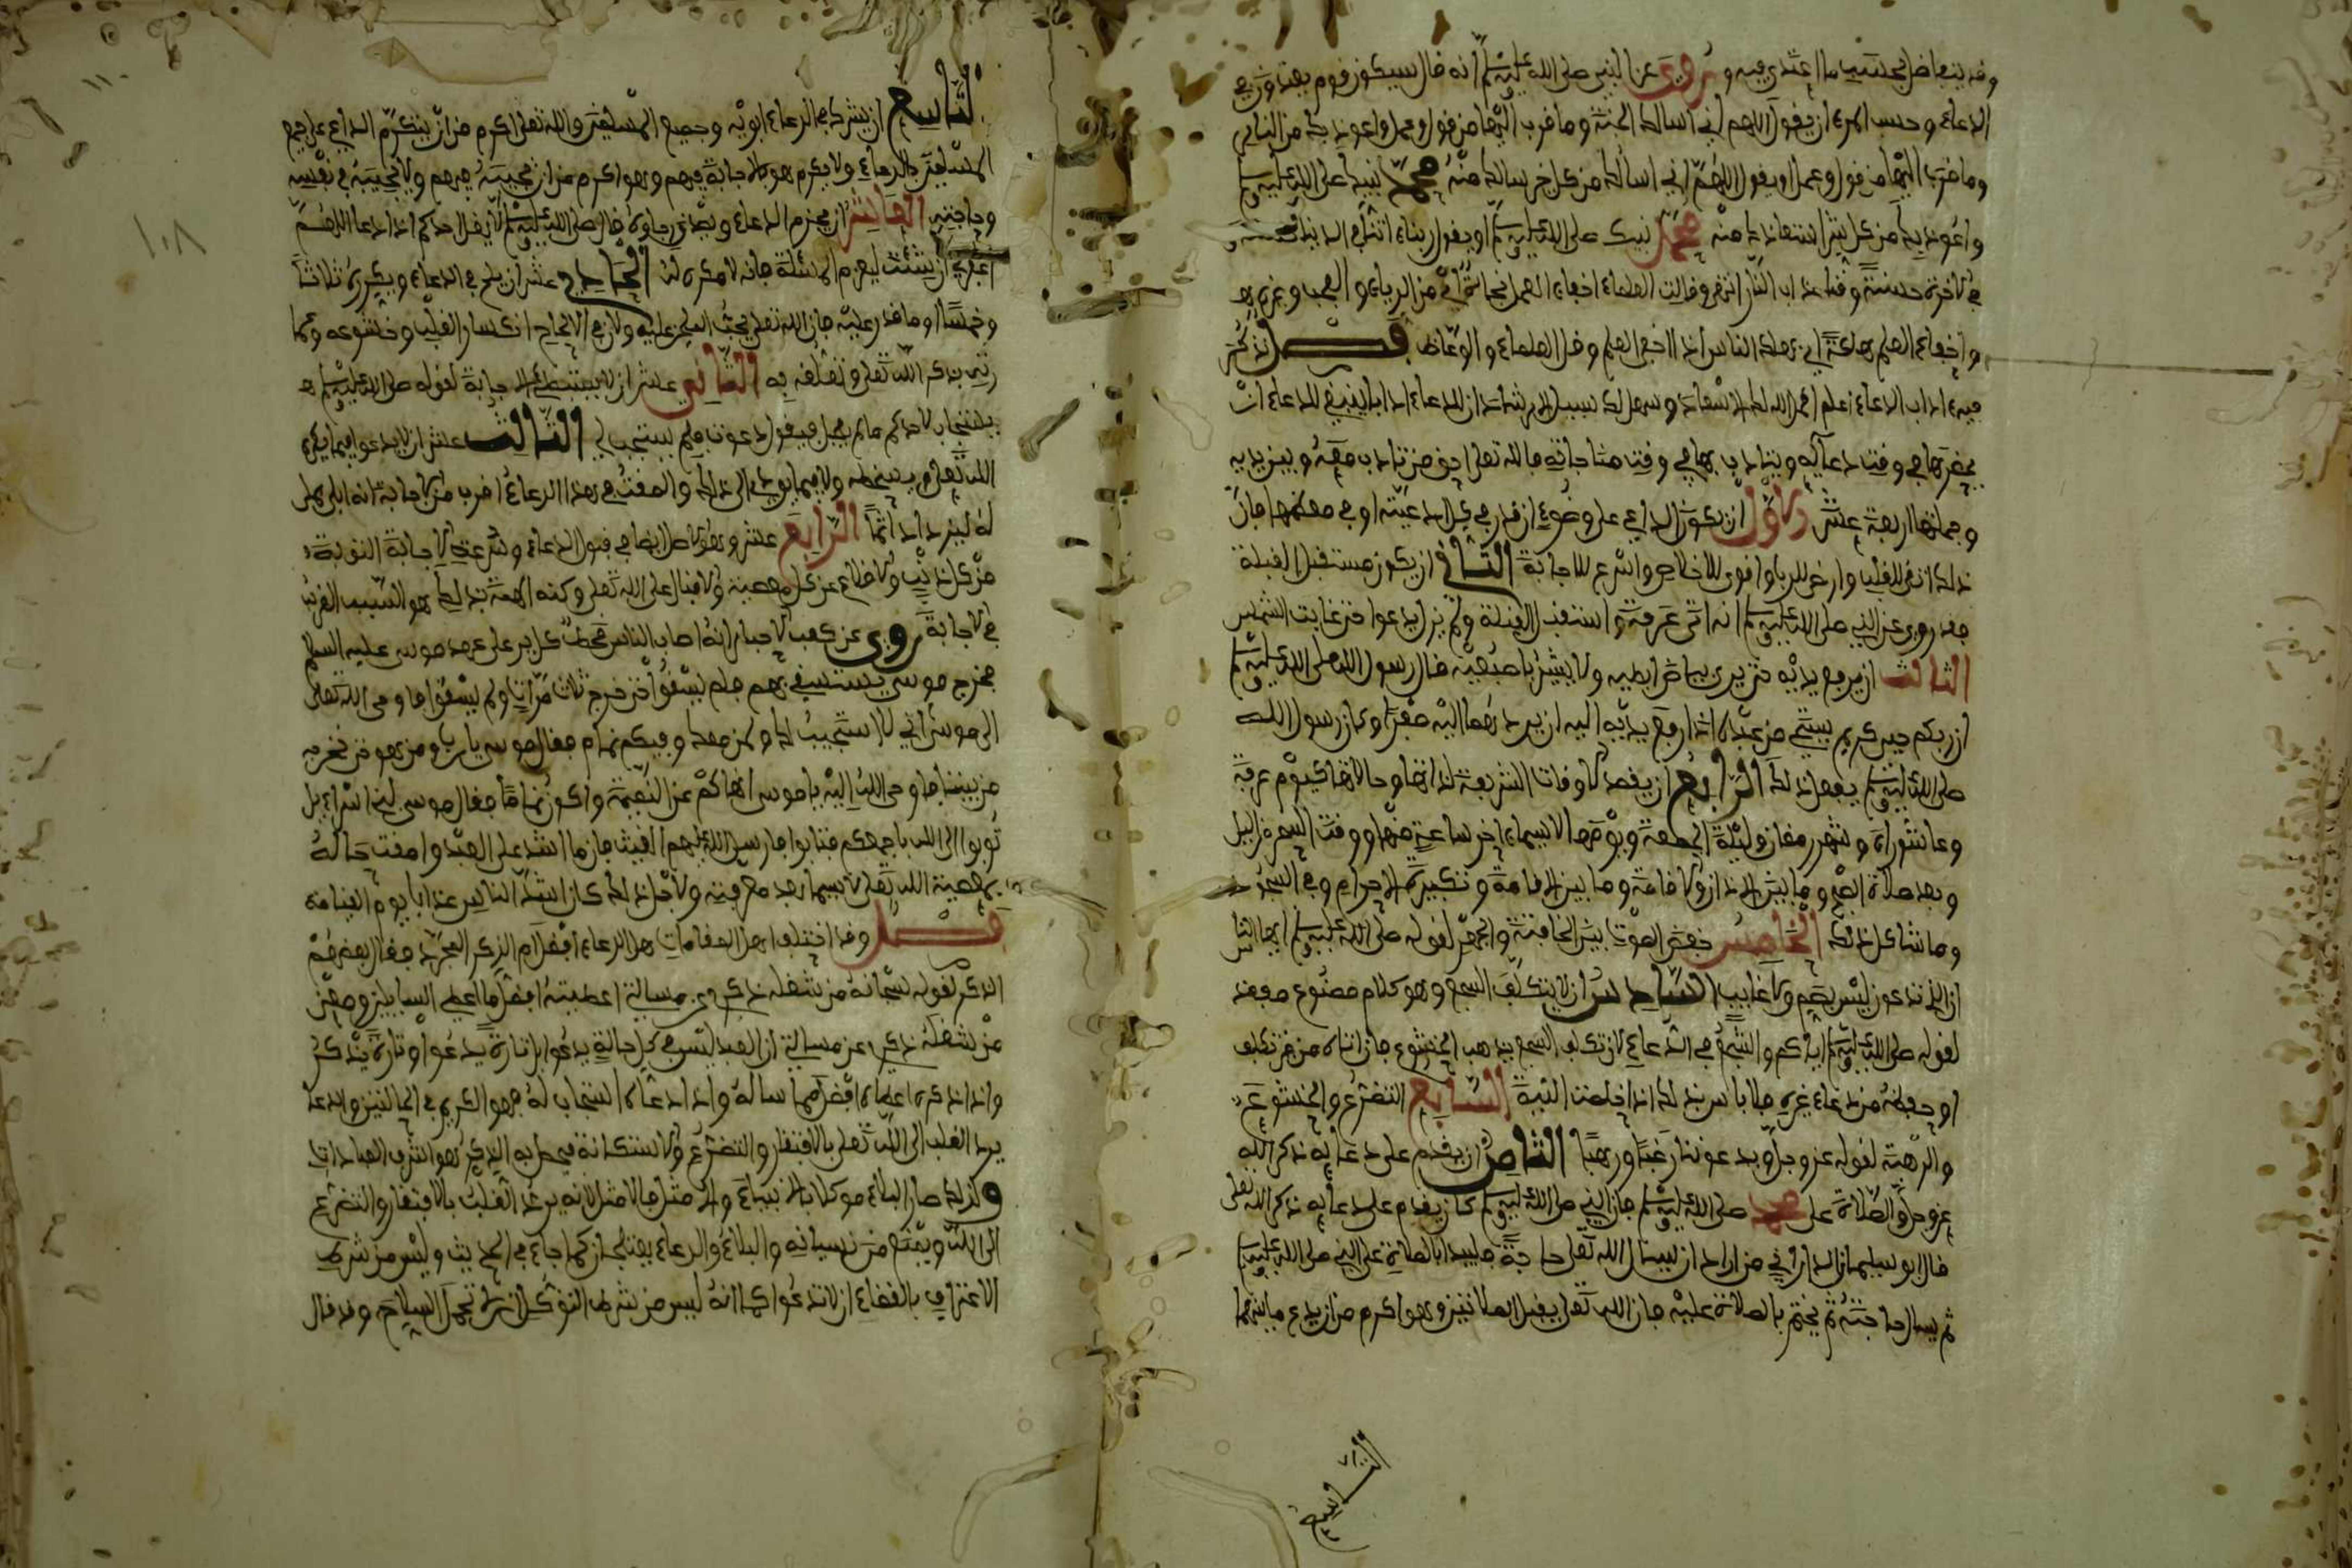 وقد يتفاضل بحسب ما اعتدى فيه وروي عن النبي صلى الله عليه وسلم أنه قال سيكون قوم يعتدون في
الدعاء وحسب المرء أن يقول اللهم إني أسألك الجنة وما قرب إليها من قول وعمل وأعوذ بك من النار
وما قرب إليها من قول وعمل أو يقول اللهم إني أسألك من كل خير سألك منه محمد نبيك صلى الله عليه وسلم
وأعوذ بك من كل شر استعاذك منه محمد نبيك صلى الله عليه وسلم أو يقول ربنا آتنا في الدنيا حسنة و
في الآخرة حسنة وقنا عذاب النار انتهى وقالت العلماء
وإخفاء العلم هلكة أي هلك الناس إذا أخفي العلم وقل العلماء والوعاظ فصل نذكر
فيه آداب الدعاء اعلم أكمل الله لك الإسعاد وسهل لك سبيل الإرشاد أن للدعاء آدابا ينبغي للداعي أن
يحضرها في وقت دعائه ويتأدب بها في وقت مناجاته فالله تعالى أحق من تأدب معه وتزين به
وجملتها أربعة عشر الأول أن يكون الداعي على وضوء إن قدر في كل أدعيته أو في معظمها فإن
ذلك أنقى للقلب وأرضى للرب وأقوى للإخلاص وأسرع للإجابة الثاني أن يكون مستقبل القبلة
فقد روي عن النبي صلى الله عليه وسلم أنه أتى عرفة واستقبل القبلة ولم يزل يدعو حتى غابت الشمس
الثالث أن يرفع يديه حتى يرى بياض إبطيه ولا يشير بأصبعيه قال رسول الله صلى الله عليه وسلم
إن ربكم حيي كريم يستحي من عبده إذا رفع يديه إليه أن يردهما إليه صفرا وكان رسول الله
صلى الله عليه وسلم يفعل ذلك الرابع أن يقصد الأوقات الشريفة لذاتها وحالاتها كيوم عرفة
وعاشوراء وشهر رمضان وليلة الجمعة ويومها لا سيما آخر ساعة منها ووقت السحر من الليل
وبعد صلاة الصبح وما بين الأذان والإقامة وما بين الإقامة وتكبيرة الإحرام وفي السجود
وما شاكل ذلك الخامس خفض الصوت بين المخافتة والجهر لقوله صلى الله عليه وسلم أيها الناس
إن الذي تدعون ليس بأصم ولا غايب السادس أن لا يتكلف السجع وهو كلام مصنوع مقفى
لقوله صلى الله عليه وسلم إياكم والسجع في الدعاء لأن تكلف السجع يذهب الخشوع فإن أتاه من غير تكلف
أو حفظه من دعاء غيره فلا بأس بذلك إذا خلصت النية السابع التضرع والخشوع
والرهبة لقوله عز وجل ويدعوننا رغبا ورهبا الثامن أن يقدم على دعائه ذكر الله
عز وجل والصلاة على محمد صلى الله عليه وسلم فإن النبي صلى الله عليه وسلم كان يقدم على دعائه ذكر الله تعالى
قال أبو سليمان الداراني من أراد أن يسأل الله تعالى حاجة فليبدأ بالصلاة على النبي صلى الله عليه وسلم
ثم يسأل حاجته ثم يختم بالصلاة عليه فإن الله تعالى يقبل الصلاتين وهو أكرم من أن يدع ما بينهما
التاسع
١٠٨
التاسع أن يشرك في الدعاء أبويه وجميع المسلمين والله تعالى أكرم من أن يتكرم الداعي على جميع
المسلمين بالدعاء ولا يكرم هو بالإجابة فيهم وهو أكرم من أن يجيبه فيهم ولا يجيبه في نفسه
وحاجته العاشر أن يجزم الدعاء ويصدق رجاؤه قال صلى الله عليه وسلم لا يقل أحدكم إذا دعا اللهم
اغفر لي إن شئت ليعزم المسئلة فإنه لا مكره له الحادي عشر أن يلح في الدعاء ويكرره ثلاثا
وخمسا أو ما قدر عليه فإن الله تعالى يحب الملح عليه ولأن في الإلحاح انكسار القلب وخشوعه
بذكر الله تعالى وتعلقه به الثاني عشر أن لا يستبطئ الإجابة لقوله صلى الله عليه وسلم
يستجاب لأحدكم ما لم يعجل فيقول دعوت فلم يستجب لي الثالث عشر أن لا يدعو فيما يكره
الله تعالى لا يما يؤدي إلى ذلك
له ليزداد إثما الرابع عشر وهو الأصل أيضا في قبول الدعاء وسرعة الإجابة التوبة
من كل ذنب والإقلاع عن كل معصية والإقبال على الله تعالى وكنه الهمة بذلك هو السبب القريب
في الإجابة روي عن كعب الأحبار أنه أصاب الناس قحط على عهد موسى عليه السلام
فخرج موسى يستسقي بهم فلم يسقوا حتى خرج ثلاث مرات ولم يسقوا فأوحى الله تعالى
إلى موسى أني لا أستجيب لك ولمن معك وفيكم نمام فقال موسى يا رب ومن هو حتى نخرجه
من بيننا فأوحى الله إليه يا موسى أنهاكم عن النميمة وأكون نماما فقال موسى لبني إسرائيل
توبوا إلى الله بأجمعكم فتابوا فأرسل الله عليهم الغيث فإن ما أشد على العبد وأمقت حالة
بمعصية الله تعالى لا سيما بعد معرفته ولأجل ذلك كان أشد الناس عذابا يوم القيامة
فصل وقد اختلف أهل المقامات هل الدعاء أفضل أم الذكر المجرد فقال بعضهم
الذكر لقوله سبحانه من شغله ذكري عن مسألتي أعطيته أفضل ما أعطي السايلين ومعنى
من شغله ذكري عن مسألتي أن العبد ليس في كل حالة يدعو بل تارة يدعو وتارة يذكر
وإذا ذكره أعطاه أفضل مما سأله وإذا دعاه استجاب له فهو الكريم في الحالتين والدعاء
يرد القلب إلى الله تعالى بالافتقار والتضرع والاستكانة فيحصل به الذكر وهو أشرف العبادات
ولذلك صار البلاء موكلا بالأنبياء والأمثل فالأمثل لأنه يرد القلب بالافتقار والتضرع
إلى الله ويمنع من نسيانه والبلاء والدعاء يعتلجان كما جاء في الحديث وليس من شرط
الاعتراف بالقضاء أن لا تدعو كما أنه ليس من شرط التوكل أن لا تحمل السلاح وقد قال